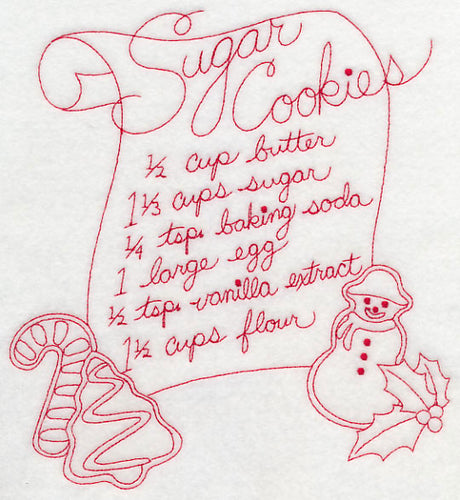 Sugar
Cookies
½ cup butter
1⅓ cups sugar
¼ tsp. baking soda
1 large egg
½ tsp. vanilla extract
1½ cups flour